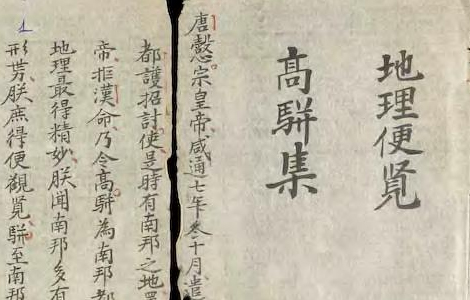 地理便覧
高駢集
唐懿宗皇帝咸通七年叁十月遣
都護招討使是時有南邦之地
帝排漢命乃令高駢為南邦都
地理最得精妙朕聞南邦多有
形势朕庶得便觀覧駢至南邦